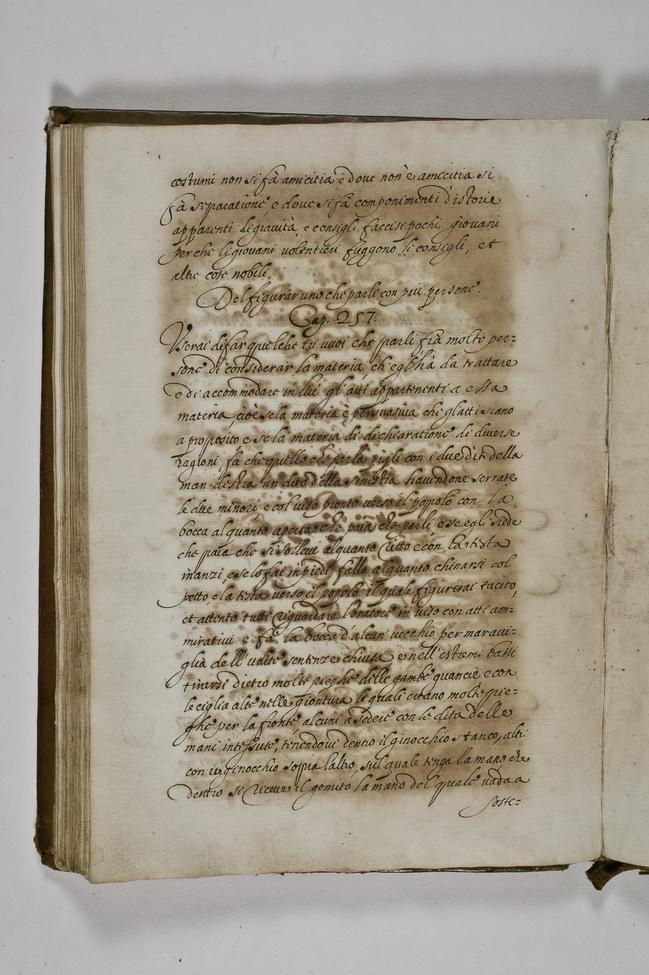 costumi non si fà amicitia, è doue non è amicitia si
fà separatione, e doue si fà componimenti d'istorie
apparenti di grauità, e consigli faccisi pochi giouani
perche li giouani volentieri fuggono li consigli, et
altre cose nobili.
Del figurar uno che parli con più persone.
Cap. 257.
Vserai di far quel che tù vuoi che parli frà molte per=
sone di considerar la materia, ch'egli hà da trattare
e di accommodare in lui gli atti appartenenti a essa
materia, cioè se la materia è persuasiua che gl'atti siano
a proposito e se la materia di dichiaratione di diuerse
ragioni, fà che quello che parla pigli con i due diti della
man destra un dito della sinistra hauendone serrate
le due minori e col viso pronto verso il popolo con la
bocca alquanto aperta che paia che parli e se egli siede
che paia che si solleui alquanto ritto e con la testa
inanzi, e se lo fai in piedi fallo alquanto chinarsi col
petto, e la testa verso il popolo il quale figurerai tacito,
et attento tutti riguardare l'oratore in viso con atti am=
miratiui e fà la bocca d'alcun vecchio per maraui=
glia dell'udite sentenze chiusa e nell'estremi bassi
tirarsi dietro molte pieghe delle gambe guancie, e con
le ciglia alte nelle gionture le quali creano molte pie=
ghe per la fronte alcuni à sedere con le dita delle
mani intessute, tenendoui dentro il ginocchio stanco, altri
con un ginocchio sopra l'altro, sul quale tenga la mano che
dentro si riceue il gomito la mano del quale vada a
soste=